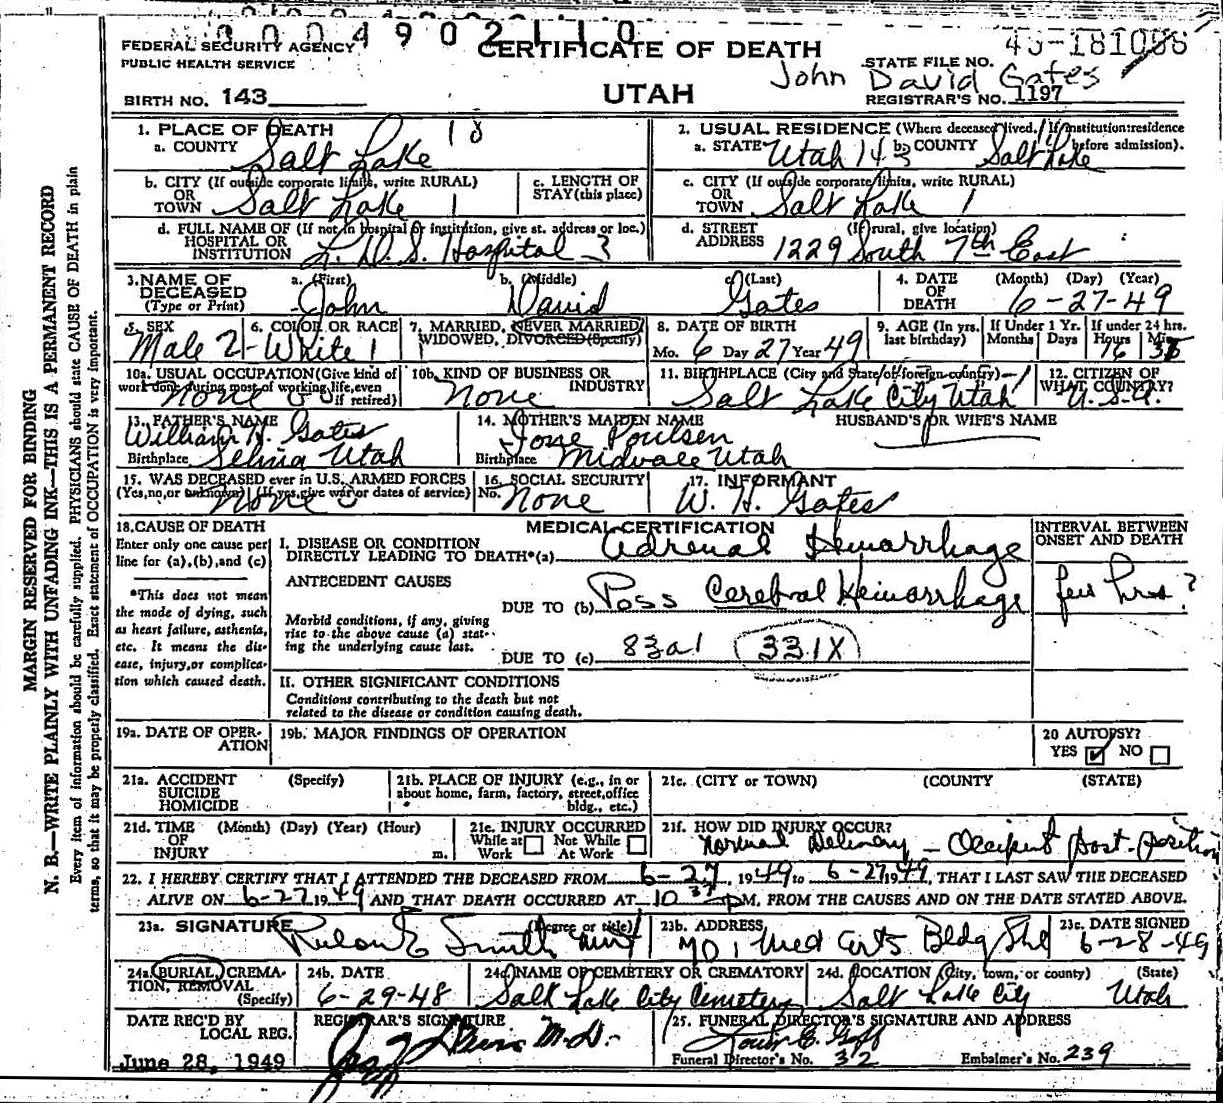 3 0 0 4 9 0 2 1 1 0
FEDERAL SECURITY AGENCY
PUBLIC HEALTH SERVICE
CERTIFICATE OF DEATH
STATE FILE NO.
John David Gates
BIRTH NO. 143
UTAH
REGISTRAR'S NO. 1197
MARGIN RESERVED FOR BINDING
N. B.—WRITE PLAINLY WITH UNFADING INK—THIS IS A PERMANENT RECORD
Every item of information should be carefully supplied. PHYSICIANS should state CAUSE OF DEATH in plain
terms, so that it may be properly classified. Exact statement of OCCUPATION is very important.
1. PLACE OF DEATH
a. COUNTY Salt Lake 18
2. USUAL RESIDENCE (Where deceased lived. If institution: residence before admission).
a. STATE Utah 143 b. COUNTY Salt Lake
b. CITY (If outside corporate limits, write RURAL)
OR TOWN Salt Lake 1
c. LENGTH OF STAY (this place)
c. CITY (If outside corporate limits, write RURAL)
OR TOWN Salt Lake 1
d. FULL NAME OF (If not in hospital or institution, give st. address or loc.)
HOSPITAL OR INSTITUTION L. D. S. Hospital 3
d. STREET ADDRESS (If rural, give location)
1229 South 7th East
3. NAME OF DECEASED (Type or Print)
a. (First) John
b. (Middle) David
c. (Last) Gates
4. DATE OF DEATH (Month) (Day) (Year)
6-27-49
5. SEX Male 2
6. COLOR OR RACE White 1
7. MARRIED, NEVER MARRIED, WIDOWED, DIVORCED (Specify)
8. DATE OF BIRTH
Mo. 6 Day 27 Year 49
9. AGE (In yrs. last birthday)
If Under 1 Yr. Months Days
If under 24 hrs. Hours Min.
16
10a. USUAL OCCUPATION (Give kind of work done during most of working life, even if retired)
None
10b. KIND OF BUSINESS OR INDUSTRY
None
11. BIRTHPLACE (City and State or foreign country)
Salt Lake City Utah
12. CITIZEN OF WHAT COUNTRY?
U.S.A.
13. FATHER'S NAME
William H. Gates
Birthplace Selina Utah
14. MOTHER'S MAIDEN NAME
Poulsen
Birthplace Midvale Utah
HUSBAND'S OR WIFE'S NAME
15. WAS DECEASED ever in U.S. ARMED FORCES
(Yes, no, or unknown) (If yes, give war or dates of service)
None
16. SOCIAL SECURITY
No. None
17. INFORMANT
W. H. Gates
18. CAUSE OF DEATH
Enter only one cause per line for (a), (b), and (c)
*This does not mean the mode of dying, such as heart failure, asthenia, etc. It means the disease, injury, or complication which caused death.
MEDICAL CERTIFICATION
I. DISEASE OR CONDITION
DIRECTLY LEADING TO DEATH*(a) Adrenal Hemorrhage
ANTECEDENT CAUSES
DUE TO (b) Poss Cerebral Hemorrhage
Morbid conditions, if any, giving rise to the above cause (a) stating the underlying cause last.
DUE TO (c) 83a1 331X
INTERVAL BETWEEN ONSET AND DEATH
few hrs?
II. OTHER SIGNIFICANT CONDITIONS
Conditions contributing to the death but not
related to the disease or condition causing death.
19a. DATE OF OPERATION
19b. MAJOR FINDINGS OF OPERATION
20 AUTOPSY?
YES ☑ NO ☐
21a. ACCIDENT SUICIDE HOMICIDE (Specify)
21b. PLACE OF INJURY (e.g., in or about home, farm, factory, street, office bldg., etc.)
21c. (CITY or TOWN) (COUNTY) (STATE)
21d. TIME OF INJURY (Month) (Day) (Year) (Hour) m.
21e. INJURY OCCURRED
While at Work ☐ Not While At Work ☐
21f. HOW DID INJURY OCCUR?
Normal Delivery - Occiput post. position
22. I HEREBY CERTIFY THAT I ATTENDED THE DECEASED FROM 6-27, 1949 to 6-27 1949, THAT I LAST SAW THE DECEASED
ALIVE ON 6-27 1949 AND THAT DEATH OCCURRED AT 10 37 P M, FROM THE CAUSES AND ON THE DATE STATED ABOVE.
23a. SIGNATURE (Degree or title)
Rulon E Smith
23b. ADDRESS
701 Med Arts Bldg
23c. DATE SIGNED
6-28-49
24a. BURIAL, CREMATION, REMOVAL (Specify)
24b. DATE
6-29-48
24c. NAME OF CEMETERY OR CREMATORY
Salt Lake City Cemetery
24d. LOCATION (City, town, or county) (State)
Salt Lake City Utah
DATE REC'D BY LOCAL REG.
June 28, 1949
REGISTRAR'S SIGNATURE
M.D.
25. FUNERAL DIRECTOR'S SIGNATURE AND ADDRESS
Funeral Director's No. 32
Embalmer's No. 239